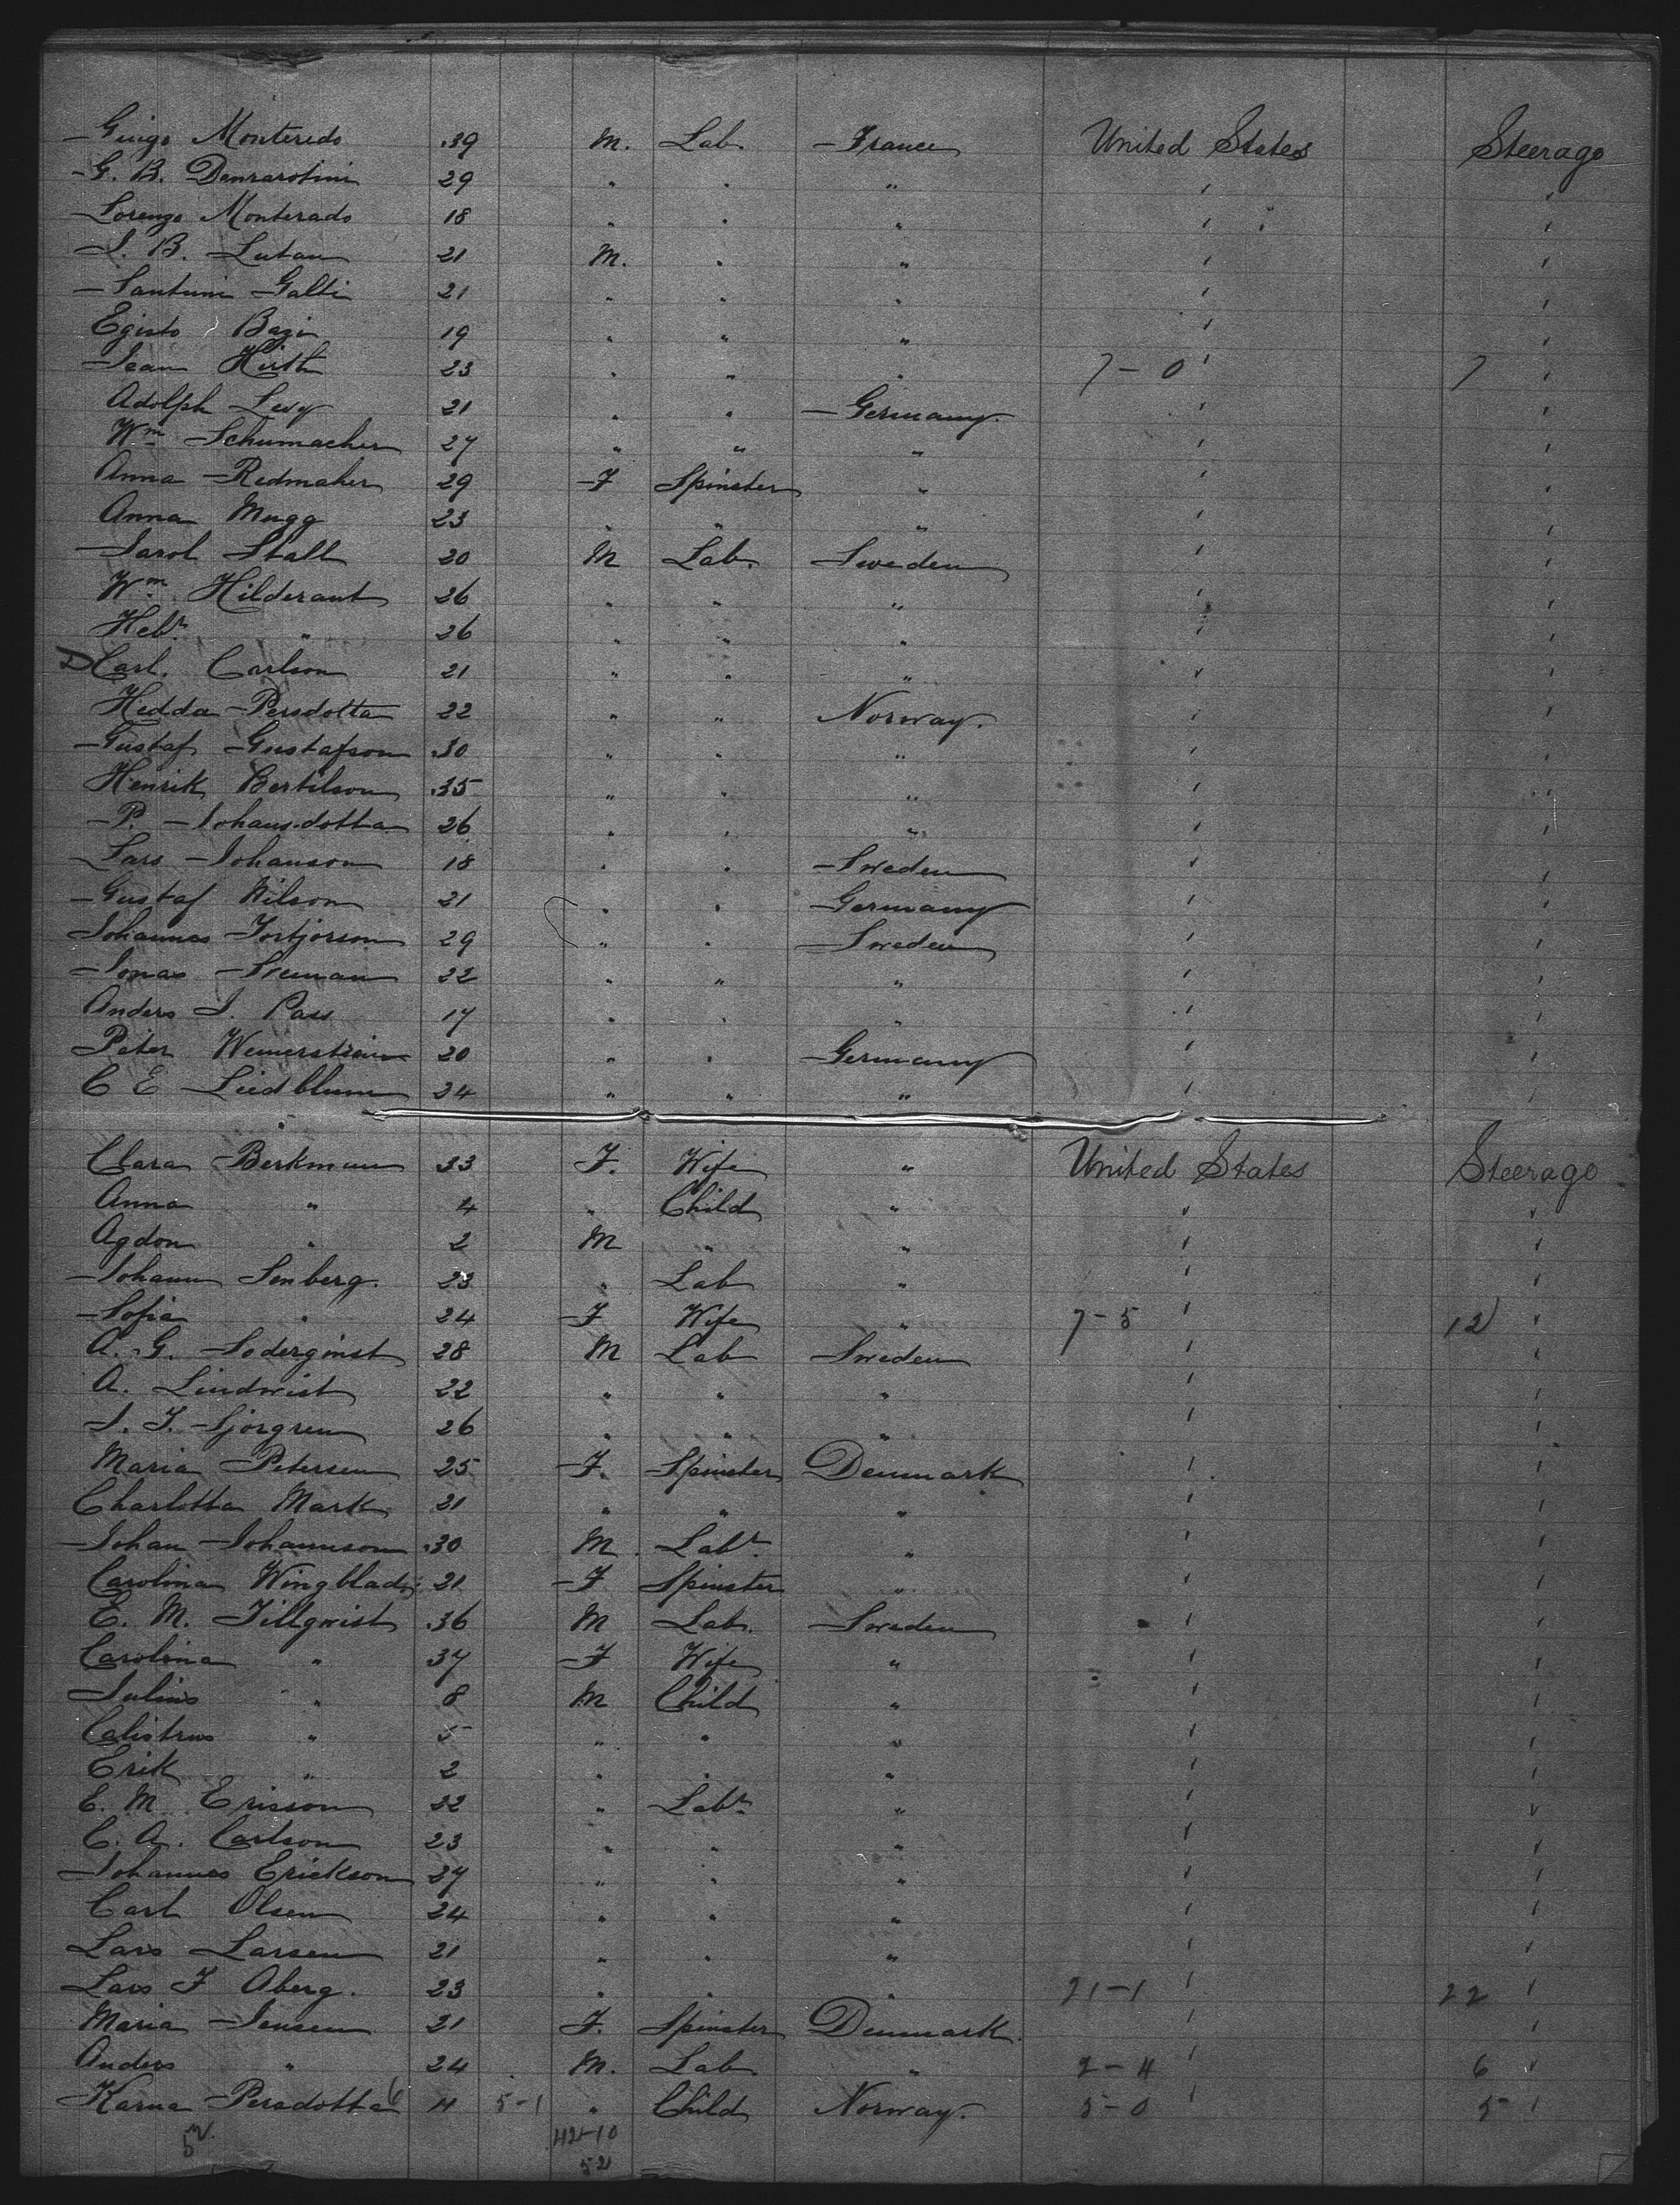 Giuigo Monteredo 39 M. Lab. France United States Steerage
G. B. Denrarotini 29 " " " " "
Lorenzo Monterado 18 " " " " "
J. B. Lutau 21 M. " " " "
Santuni Galti 21 " " " " "
Egisto Bazi 19 " " " " "
Jean Hirth 23 " " " 7-0 " 7 "
Adolph Levy 21 " " Germany. " "
Wm Schumacher 27 " " " " "
Anna Redmaher 29 F Spinster " " "
Anna Mugg 23 " " " " "
Jarol Stall 20 M Lab. Sweden " "
Wm Hilderant 26 " " " " "
Hebr " 26 " " " " "
D Carl. Carlson 21 " " " " "
Hedda Persdotta 22 " " Norway. " "
Gustaf Gustafson 30 " " " " "
Henrik Bertilson 35 " " " " "
P. Johansdotta 26 " " " " "
Lars Johanson 18 " " Sweden " "
Gustaf Nilson 21 " " Germany " "
Johannes Torbjorson 29 " " Sweden " "
Jonas Sveman 22 " " " " "
Anders J. Pass 17 " " " " "
Peter Wennerstrain 20 " " Germany " "
C E Liedblum 24 " " " " "
Clara Berkman 33 F. Wife " United States Steerage
Anna " 4 " Child " " "
Agdon " 2 M " " " "
Johann Senberg. 23 " Lab " " "
Sofia " 24 F Wife " 7-5 " 12 "
A. G. Soderginst 28 M Lab Sweden " "
A. Lindwist 22 " " " " "
J. F. Sjorgren 26 " " " " "
Maria Petersen 25 F. Spinster Denmark " "
Charlotta Mark 21 " " " " "
Johan Johannson 30 M. Labr. " " "
Carolina Wingblad 21 F Spinster " " "
E. M. Tillqwist 36 M Lab. Sweden " "
Carolina " 37 F Wife " " "
Julius " 8 M Child " " "
Calistrus " 5 " " " " "
Erik " 2 " " " " "
E. M. Ericson 22 " Labr. " " "
C. A. Carlson 23 " " " " "
Johannes Erickson 27 " " " " "
Carl Olsen 24 " " " " "
Lars Larsen 21 " " " " "
Lars F Aberg. 23 " " " 21-1 " 22 "
Maria Jensen 21 F. Spinster Denmark. " "
Anders " 24 M. Lab " 2-4 " 6 "
Karna Persdotta 6 4 5-1 " Child Norway. 5-0 " 5 "
52 42-10
52